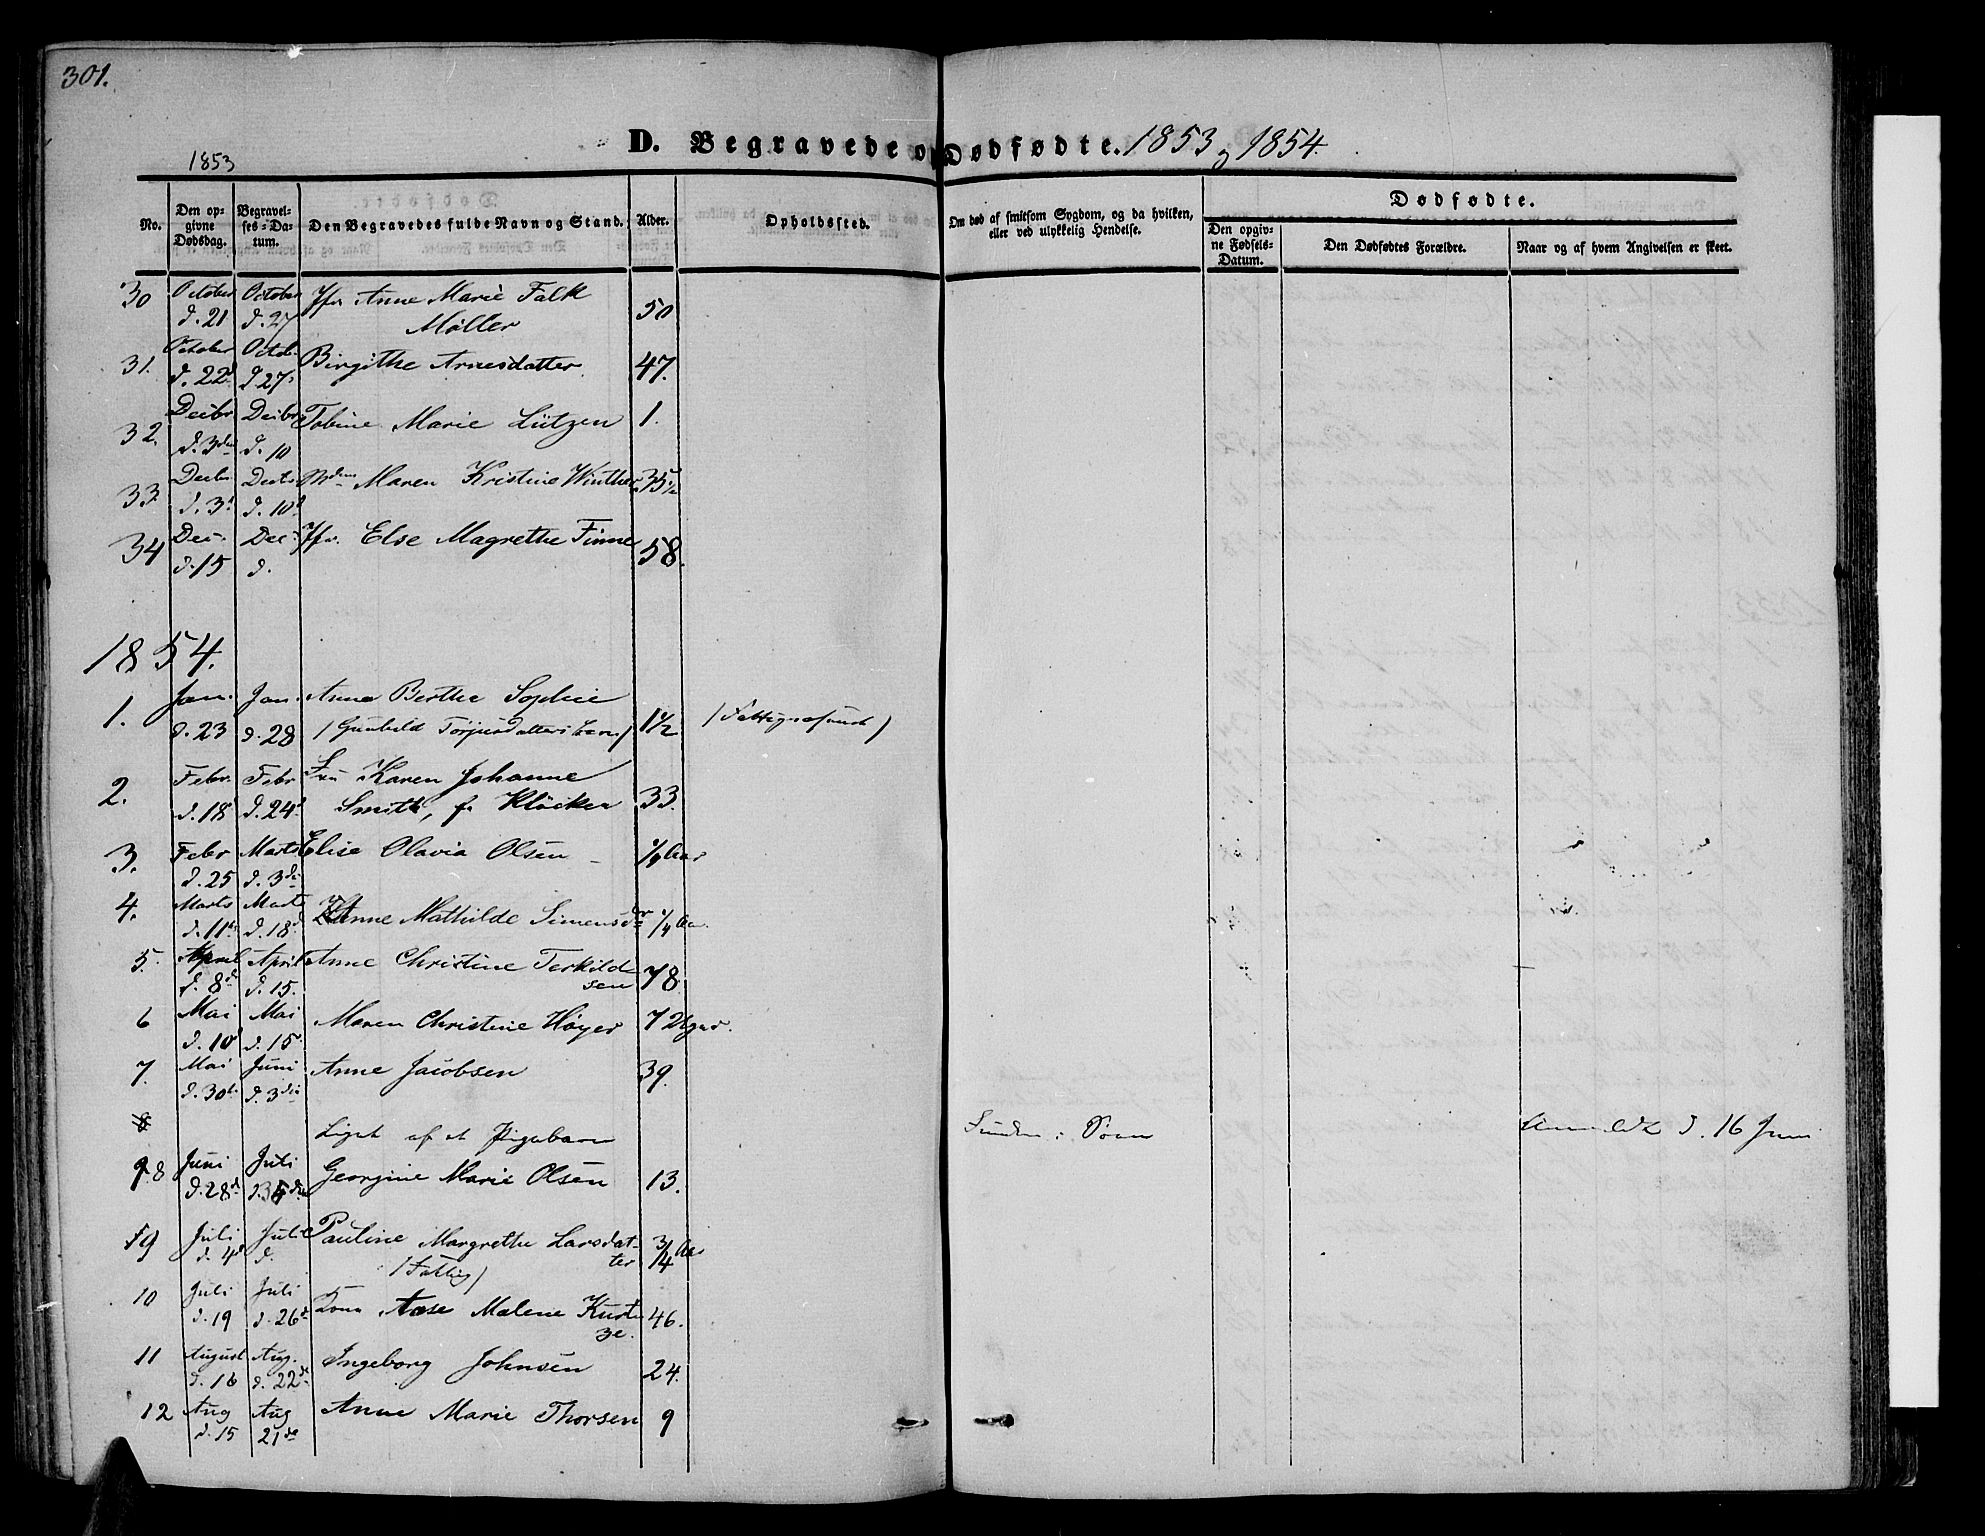 301.
D. Begravede o
Dødfødte. 1853 og 1854.
1853
No.
Den op-
givne
Dødsdag.
Begravel-
ses-Da-
tum.
Den Begravedes fulde Navn og Stand.
Alder.
Opholdssted.
Om død af smitsom Sygdom, og da hvilken,
eller ved ulykkelig Hendelse.
Dødfødte.
Den opgiv-
ne Fødsels-
Datum.
Den Dødfødtes Forældre.
Naar og af hvem Angivelsen er skeet.
30 October d. 21 October d. 27 Jfr Anne Marie Falk
Møller 50
31. October d. 22 Octob. d 27 Birgithe Arnesdatter 47.
32. Decbr d. 3 Decbr d. 10 Tobine Marie Lützen 1.
33. Decbr d. 3 Decbr d. 10 Mdm Maren Kristine Winther 35½
34 Dec. d. 15 Dec d. Jfr. Else Magrethe Finne 58.
1854.
1. Jan. d. 23 Jan. d. 28 Anne Berthe Sophie
/ Gunhild Torjusdatters Barn / 1½ / Fattignafundt )
2. Febr. d. 18 Febr d. 24 Fru Karen Johanne
Smith, f. Klöcker 33.
3. Febr d. 25 Marts d. 3 Elise Olavia Olsen Aar
4. Marts d. 11 Marts d. 18 Anne Mathilde Simensdr ¼ Aar
5. April d. 8 April d. 15. Anne Christine Terkild-
sen 78
6 Mai d. 10 Mai d. 15. Maren Christine Høyer 7 Uger.
7. Mai d. 30 Juni d. 3 Anne Jacobsen 39.
8 Liget af et Pigebarn Funden i Anmeldt d. 16 Juni
8 Juni d. 28 Juli Georgine Marie Olsen 13.
9 Juli d. 4 Juli d. Pauline Margrethe Larsdat-
ter ¾ Aar
/ Fattig /
10 Juli d. 19 Juli d. 26 Kone Aase Malene
46.
11 August d. 16 Aug. d. 22 Ingeborg Johnsen 24.
12 Aug d. 15 Aug 21 Anne Marie Thorsen 9